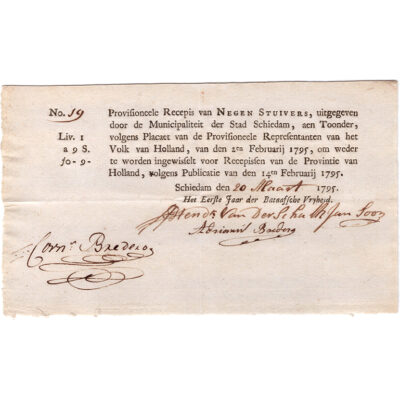 No. 19 Provisioneele Recepis van NEGEN STUIVERS, uitgegeven
door de Municipaliteit der Stad Schiedam, aen Toonder,
Liv. 1 volgens Placaet van de Provisioneele Repræsentanten van het
a 9 S. Volk van Holland, van den 2den Februarij 1795, om weder
f0-9- te worden ingewisselt voor Recepissen van de Provintie van
Holland, volgens Publicatie van den 14den Februarij 1795.
Schiedam den 20 Maart 1795.
Het Eerste Jaar der Bataafsche Vryheid.
Van Der Schalk Jan Zoon
Adrianus Bredero
Corns. Bredero